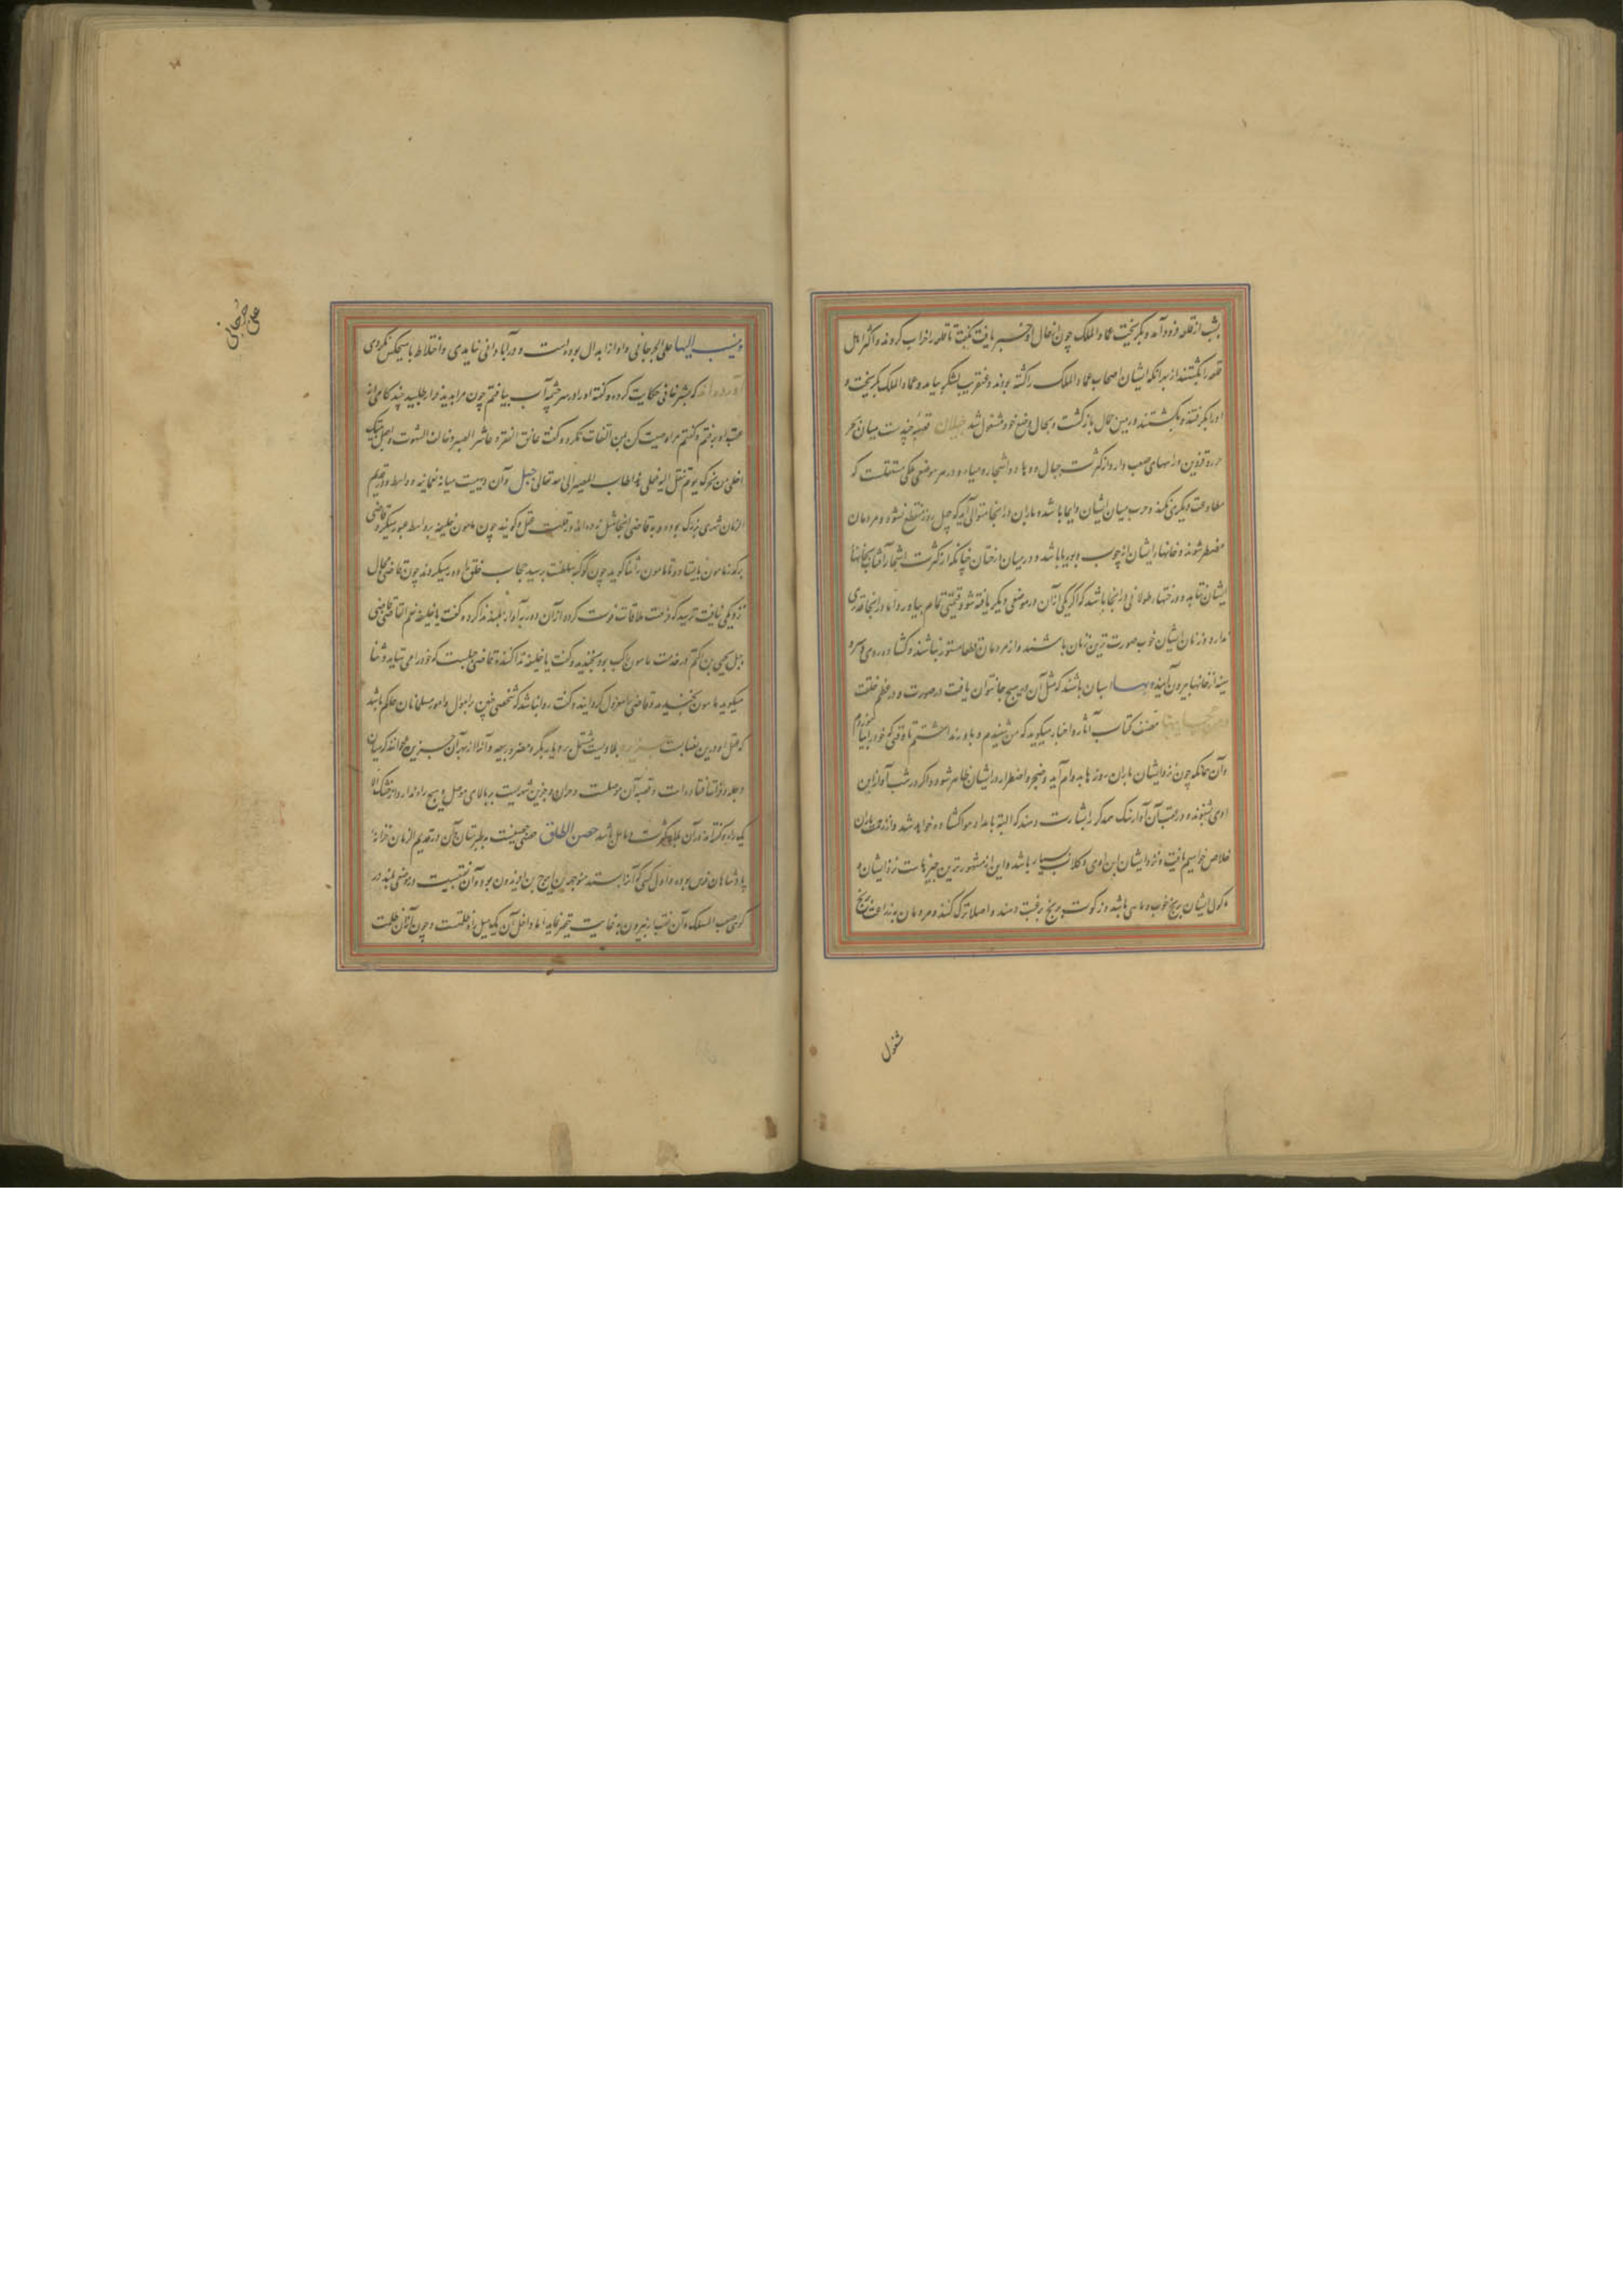 بشب از قلعه فرود آمد و بگریخت عماد الملک چون از حال او خبر یافت بگفت تا قلعه را خراب کردند و اکثر اهل
قلعه را بکشتند از بهر آنکه ایشان اصحاب عماد الملک را کشته بودند و عنقریب لشکر بیامد و عماد الملک بگریخت و
او را بگرفتند و بکشتند و ربیس بحال باز گشت و بحال وضع خود مشغول شد جیلان قصبهٔ چندست میان بحر
خزر و قزوین و راههای صعب دارد از کثرت جبال و وهاد و اشجار و میاه و در هر موضعی ملکی مستقلست که
مطاوعت دیگری نکند و حرب میان ایشان دایما باشد و باران در آنجا متوالی آید که چهل روز منقطع نشود و مردمان
مضطر شوند و خانهای ایشان از چوب و بوریا باشد و در میان درختان چنانکه از کثرت اشجار آفتاب بخانهای
ایشان نتابد و درختهای طولانی در آنجا باشد که اگر یکی از آن در موضعی دیگر یافته شود قیمتی تمام بیاورد اما در آنجا قدری
ندارد و زنان ایشان خوب صورت ترین زنان باشند و از مردمان قطعا مستور نباشند و گشاده روی و سر و
سینه از خانها بیرون آیند و بها اسبان باشند که مثل آن در هیچ جا نتوان یافت در صورت و در عظم خلقت
و من عجایبها مصنف کتاب آثار و اخبار میگوید که من شنیدم و باور نداشتم تا وقتی که خود بیازمودم
و آن چنانکه چون نزد ایشان باران روزها بدوام آید و ضجر و اضطرار در ایشان ظاهر شود و اگر در شب آواز ابن
اوی شنوند و در عقب آن آواز سگ همدگر را بشارت دهند که البته بامداد هوا گشاده خواهد شد و از زحمت باران
خلاص خواهیم یافت و نزد ایشان ابن اوی و کلاب بسیار باشد و این از مشهورترین چیزهاست نزد ایشان و
مأکول ایشان برنج خوب و ماهی باشد و زکوت برنج برغبت دهند و اصلا ترک نکنند و مردمان بزراعت برنج
مشغول
علی جرجانی
وینسب الیها علی الجرجانی و او از ابدال بوده است و در آبادانی نیامدی و اختلاط با هیچکس نکردی
آورده اند که بشر حافی حکایت کرده و گفته او را در سر چشمهٔ آب بیافتم چون مرا بدید فرار طلبید چند گامی از
عقب او برفتم و گفتم مرا وصیت کن بمن التفات نکرد و گفت عانق الفقر و عاشر الصبر و خالف الشهوت و اجعل بیتک
اخلی من لحدک یوم تنقل الیه فعلی هذا طاب المصیر الی الله تعالی جبل و آن دهیست میانه نعمانیه و واسط و در قدیم
الزمان شهری بزرگ بوده و به قاضی آنجا مثل زده اند در قلت عقل و گویند چون مامون خلیفه بواسط عبور میکرد قاضی
بر گذر مامون بایستاد و تا مامون را ثنا گوید چون کوکبه سلطنت برسید حجاب خلق را دور میکردند چون قاضی مجال
نزدیکی نیافت ترسید که فرصت ملاقات فوت گردد از آن دور بآواز بلند ندا کرد و گفت یا خلیفه نعم القاضی قاضی
جبل یحیی بن اکثم در خدمت مامون راکب بود بخندید و گفت یا خلیفه ندا کننده قاضی جبلست که خود را می ستاید و ثنا
میگوید مامون بخندید و قاضی را معزول گردانید و گفت روا نباشد که شخصی چنین بر اموال و امور مسلمانان حاکم باشد
که عقل او در این بغایت جزیره بلادیست مشتمل بر دیار بکر و مضر و ربیعه و آنرا از بهر آن جزیره میخوانند که میان
دجله و فرات افتاده است و قصبه آن موصلست و حران و جزین شهریست بر بالای موصل و هیچ راه ندارد از خشکی الا
یک راه و گفته اند در آن علاج بکثرت و مامل باشد حصن الطاق حصنی حصینست بطبرستان آن در قدیم الزمان خزانه
پادشاهان فرس بوده و اول کسی که آنرا بستد منوچهر بن ایرج بن افریدون بود و آن نقبیست در موضعی بلند در
کوهی صعب المسلک و آن نقب از بیرون بغایت حقیر نماید اما داخل آن یک میل راه ظلمتست و چون از آن ظلمت